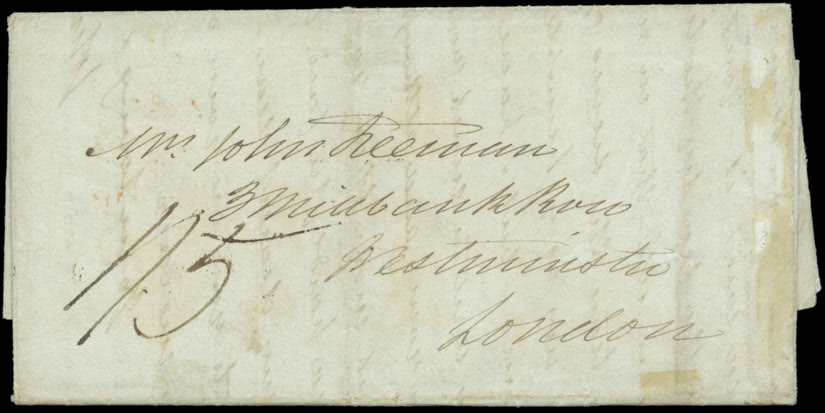 Mrs. John Freeman
3 Millbank Row
Westminster
London
1/5